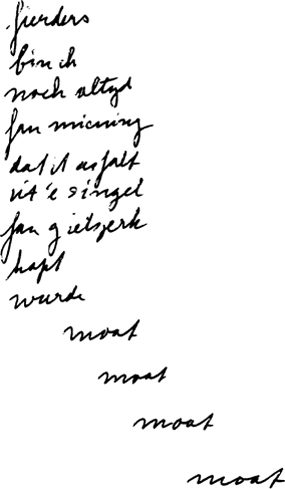 fierders
bin ik
noch altyd
fan miening
dat it asfalt
út 'e singel
fan gytsjerk
hapt
wurde
moat
moat
moat
moat